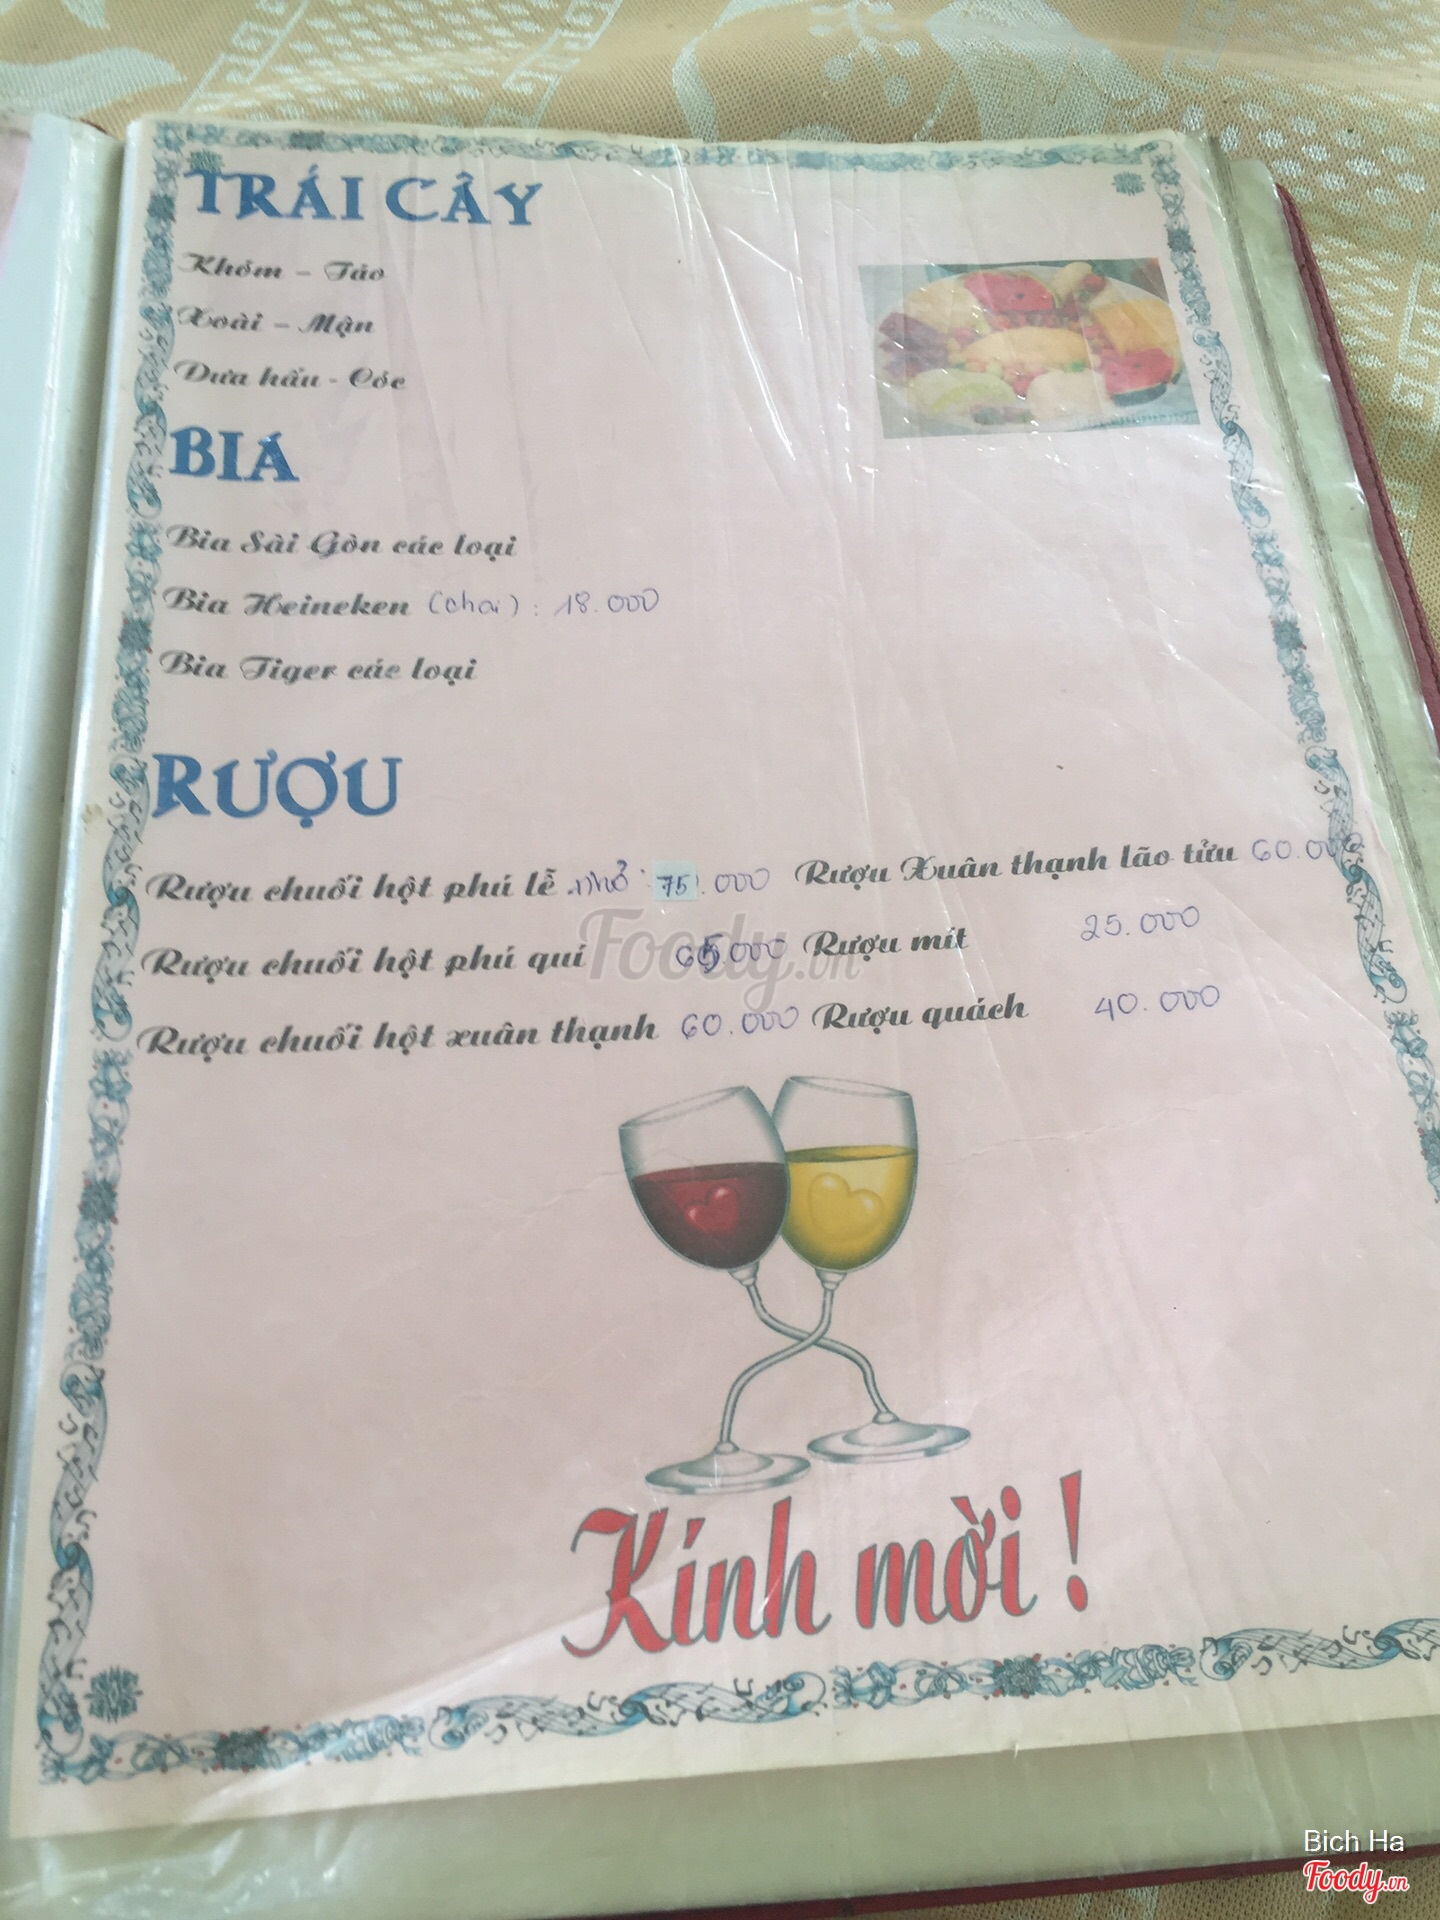 TRÁI CÂY
Khóm – Táo
Xoài – Mận
Dưa hấu - Cóc
BIA
Bia Sài Gòn các loại
Bia Heineken (chai) : 18.000
Bia Tiger các loại
RƯỢU
Rượu chuối hột phú lễ nhỏ : 75.000 Rượu Xuân thạnh lão tửu 60.000
Rượu chuối hột phú quí 65.000 Rượu mít 25.000
Rượu chuối hột xuân thạnh 60.000 Rượu quách 40.000
Foody.vn
Kính mời !
Bich Ha
Foody.vn